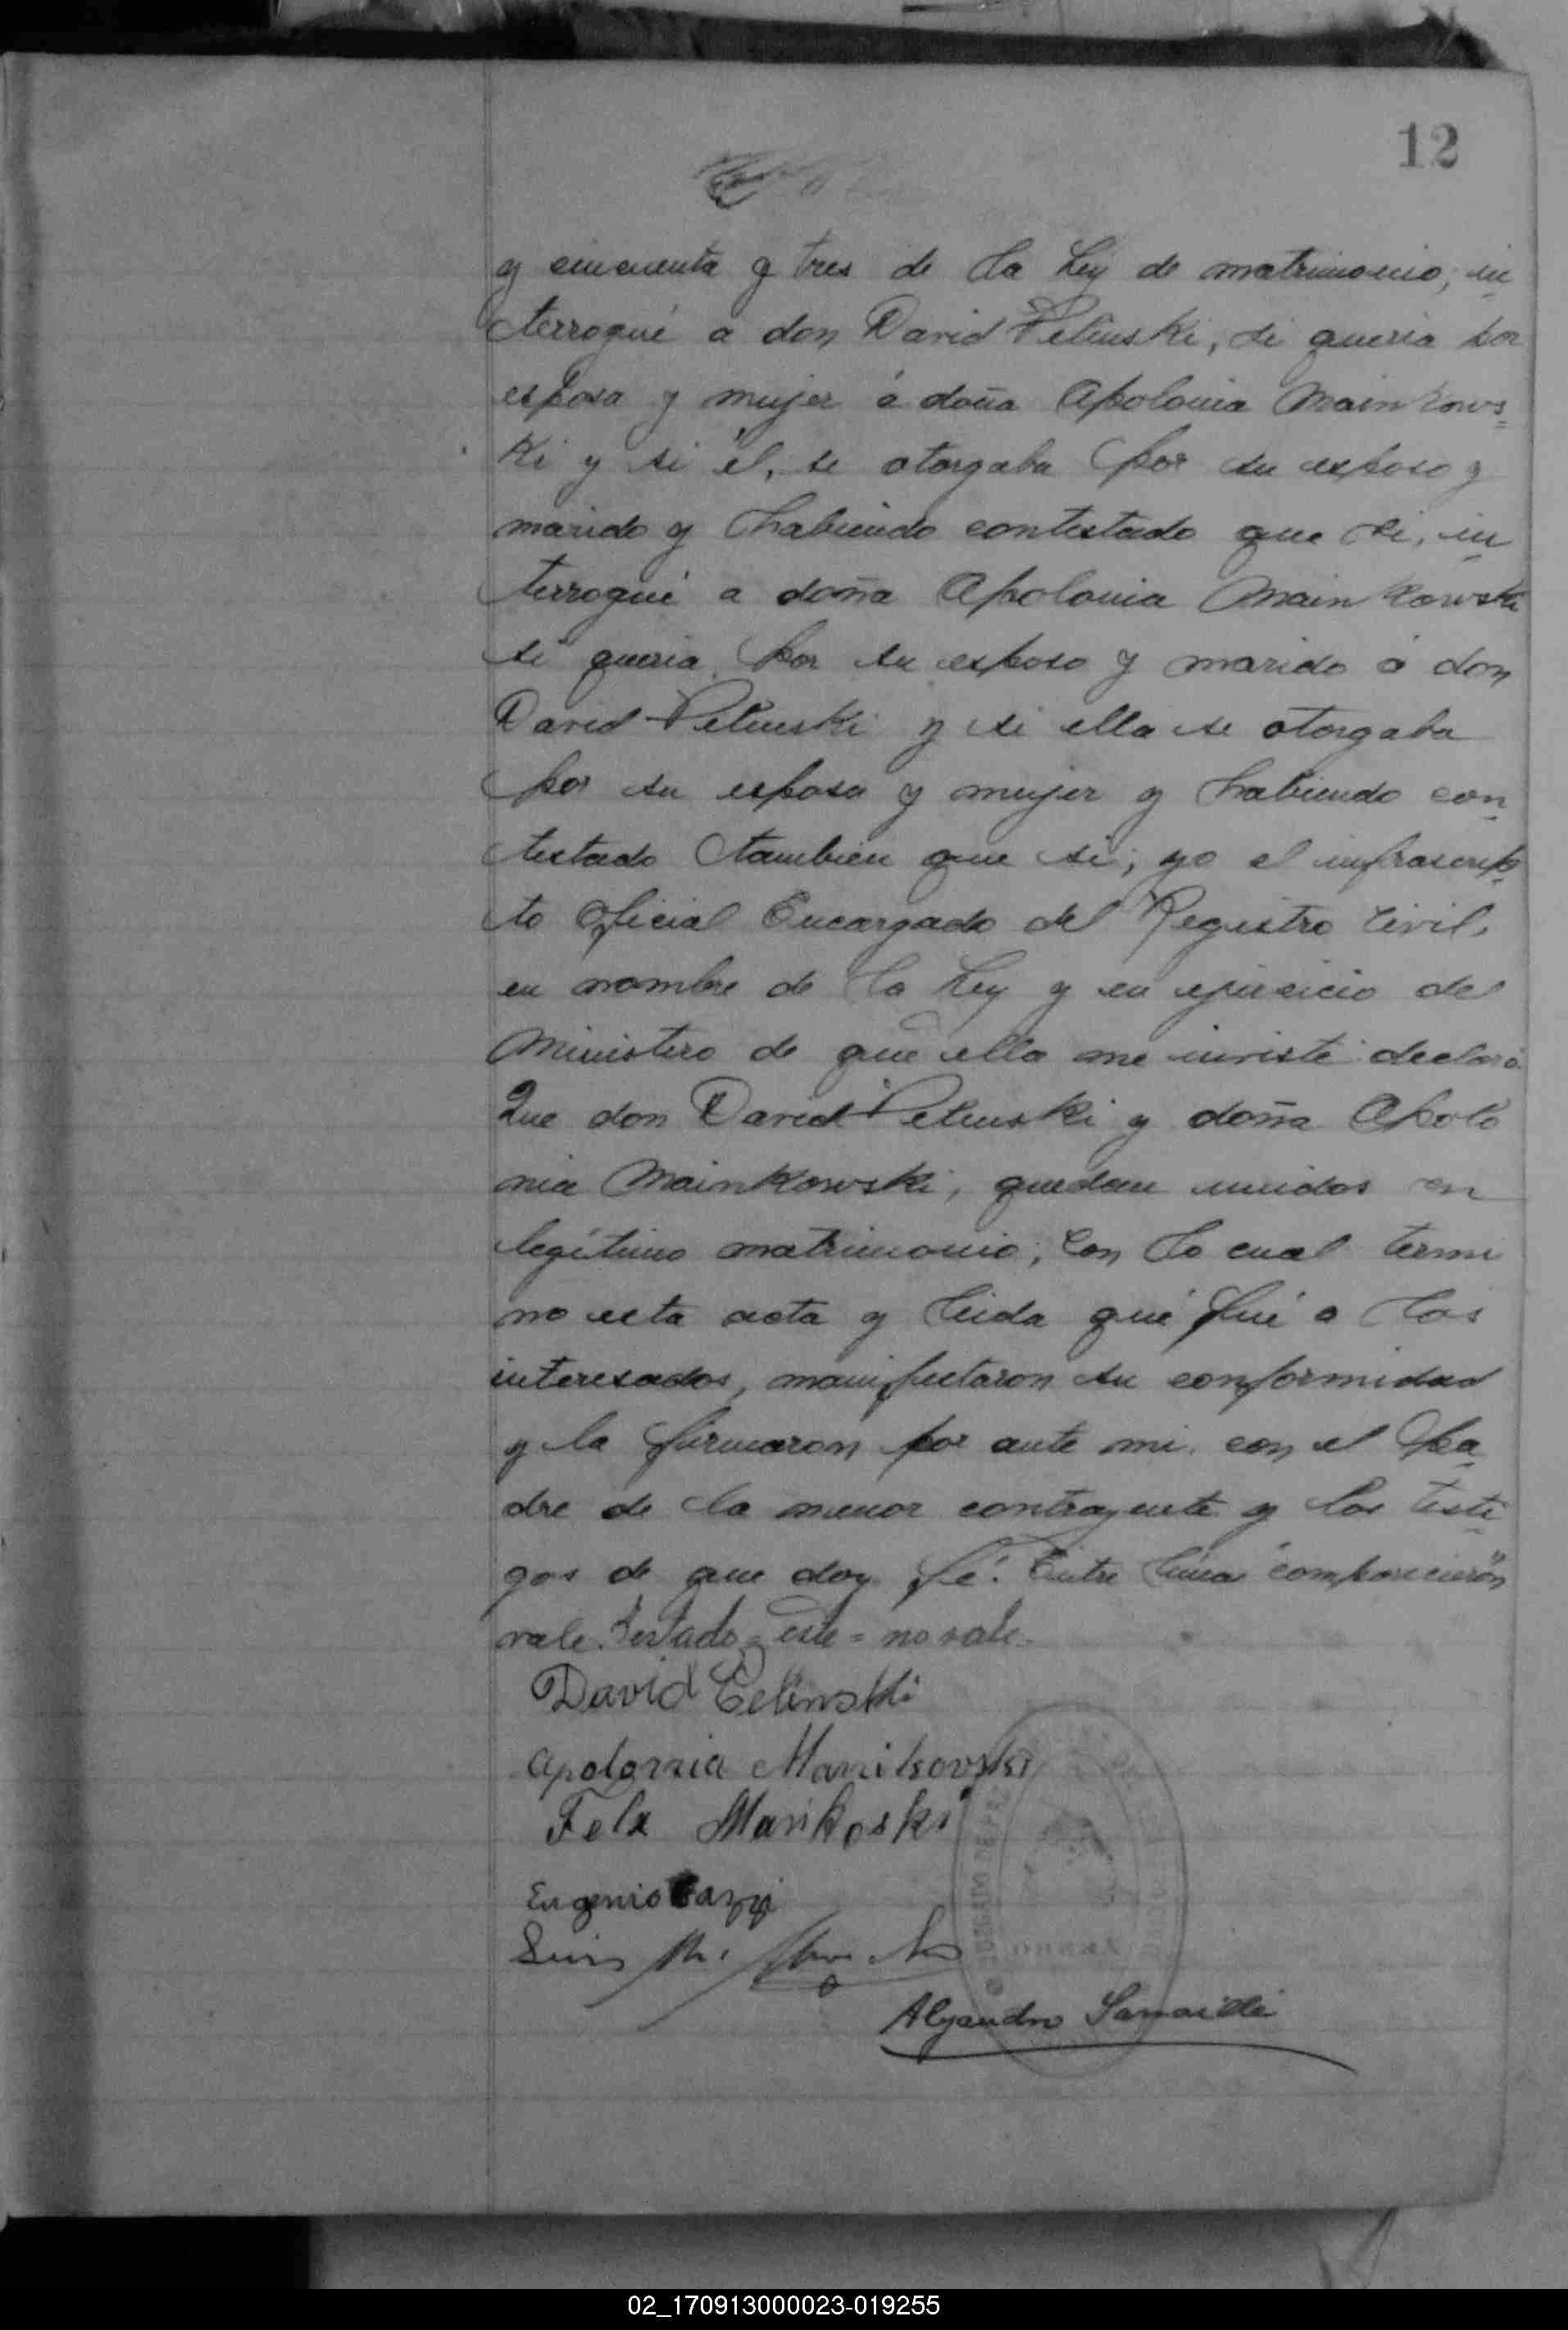 12
y cincuenta y tres de la Ley de matrimonio, in
terrogué a don David Pelinski, si queria por
esposa y mujer á doña Apolonia Mainkows=
ki y si él, se otorgaba por su esposo y
marido y habiendo contestado que si, in
terrogué a doña Apolonia Mainkowski
si queria por su esposo y marido á don
David Pelinski y si ella se otorgaba
por su esposa y mujer y habiendo con
testado tambien que si; yo el infrascrip
to Oficial Encargado del Registro Civil,
en nombre de la Ley y en ejercicio del
Ministero de que ella me inviste declaro
Que don David Pelinski y doña Apolo
nia Mainkowski, quedan unidos en
legítimo matrimonio; Con lo cual termi
no esta acta y leida que fué a los
interesados, manifestaron su conformidad
y la firmaron por ante mi con el pa
dre de la menor contrayente y los testi
gos de que doy fé. Entre linea "comparecieron"
vale. Testado = este = no vale.
David Celinski
Apolonia Manikovski
Felx Manikoski
Eugenio
Luis M.
Alejandro
02_170913000023-019255